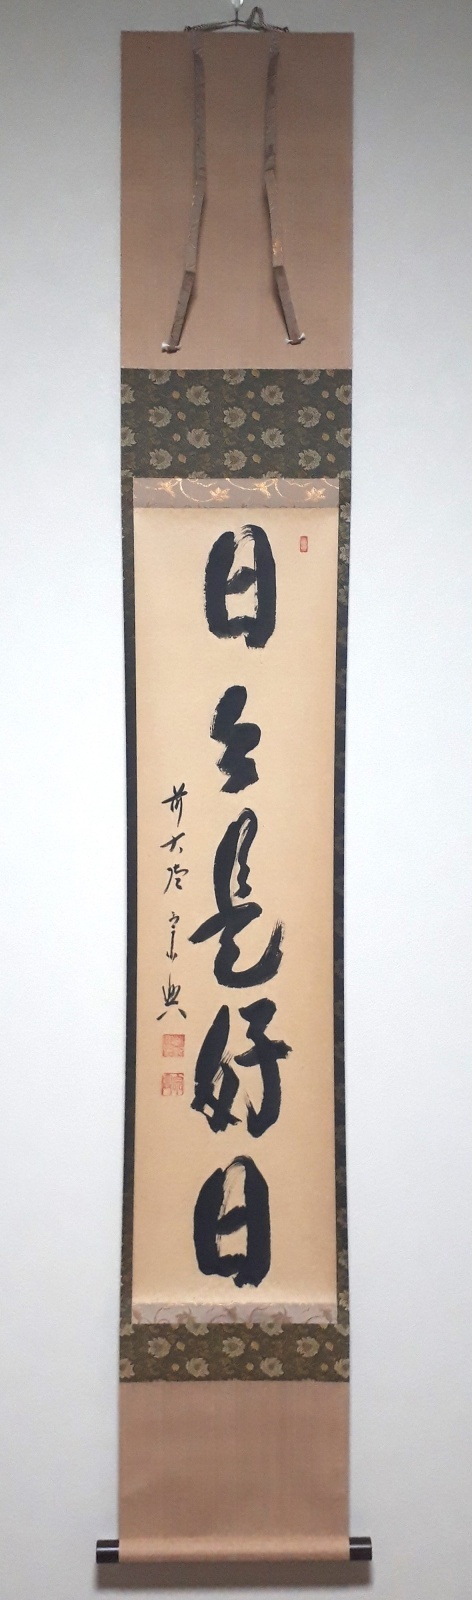 日々是好日
前大徳宗典